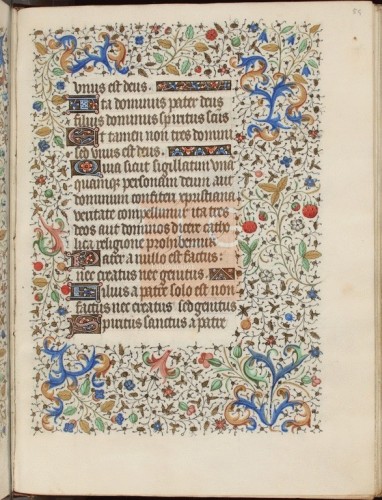 vnus est deus.
Ita dominus pater deus
filius dominus spiritus sāts
Et tamen non tres domini
sed vnus est deus.
Quia sicut sigillatim vna
quamque personam deum aut
dominum confiteri xpistiana
veritate compellimur ita tres
deos aut dominos dicere catho
lica religione prohibemur
Pater a nullo est factus:
nec creatus nec genitus.
Filius a patre solo est non
factus nec creatus sed genitus
Spiritus sanctus a patre